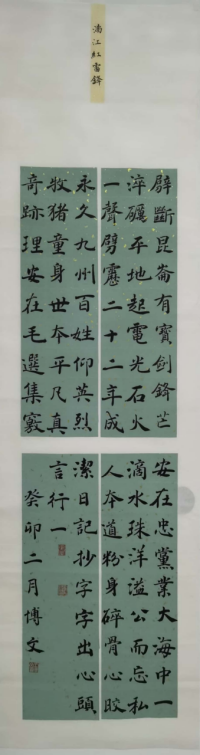 滿江紅雷鋒
劈斷昆崙有寶劍鋒芒
淬礪平地起電光石火
一聲劈靂二十二年成
永久九州百姓仰英烈
牧猪童身世本平凡真
奇跡理安在毛選集竅
安在忠黨業大海中一
滴水珠洋溢公而忘私
人本道粉身碎骨心皎
潔日記抄字字出心頭
言行一
癸卯二月博文